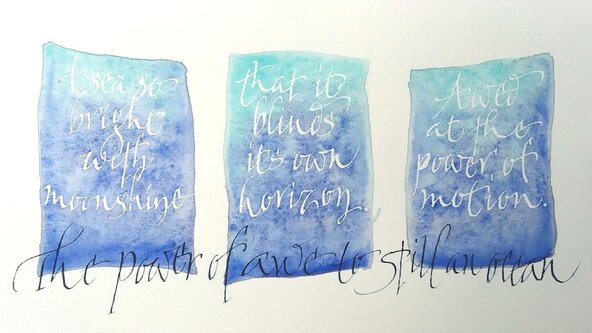 A sea so
bright
with
moonshine
that it
blinds
its own
horizon,
Awed
at the
power of
motion.
The power of awe to still an ocean